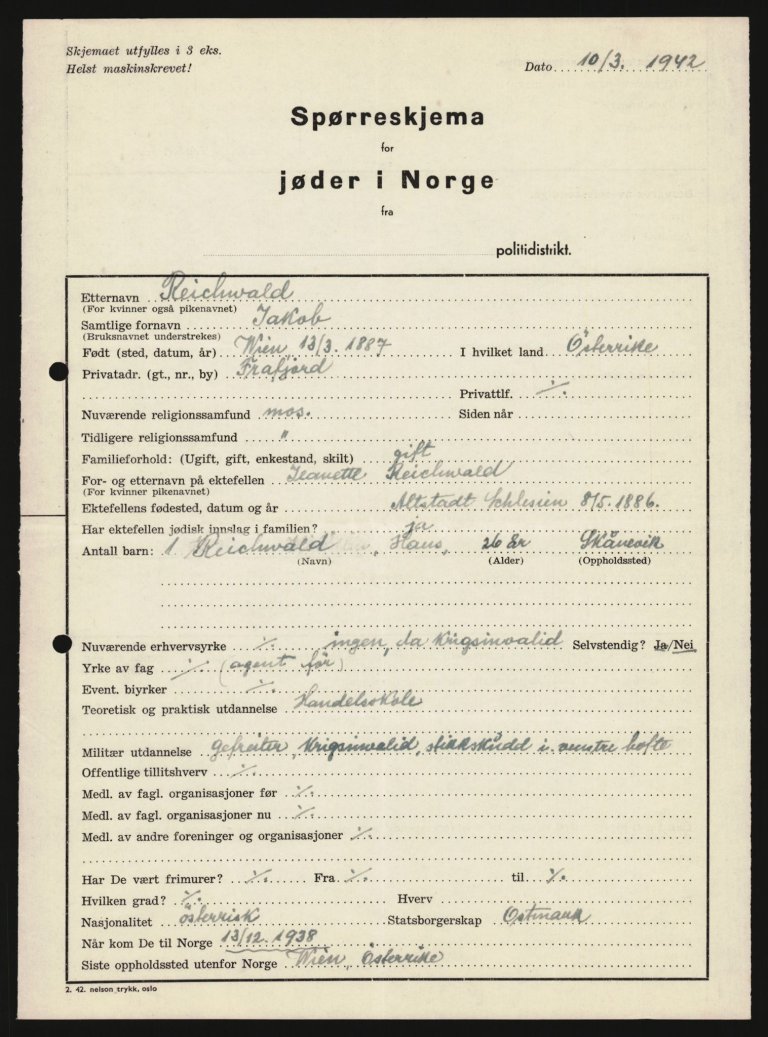 Skjemaet utfylles i 3 eks.
Helst maskinskrevet!
Dato 10/3. 1942
Spørreskjema
for
jøder i Norge
fra
politidistrikt.
Etternavn Reichwald
(For kvinner også pikenavnet)
Samtlige fornavn Jakob
(Bruksnavnet understrekes)
Født (sted, datum, år) Wien 13/3. 1887 I hvilket land Österrike
Privatadr. (gt., nr., by) Frafjord
Privattlf. ·/.
Nuværende religionssamfund mos. Siden når
Tidligere religionssamfund "
Familieforhold: (Ugift, gift, enkestand, skilt) gift
For- og etternavn på ektefellen Jeanette Reichwald
(For kvinner pikenavnet)
Ektefellens fødested, datum og år Altstadt Schlesien 8/5. 1886.
Har ektefellen jødisk innslag i familien? ja
Antall barn: 1 Reichwald, Hans, 26 år Skånevik
(Navn) (Alder) (Oppholdssted)
Nuværende erhvervsyrke ·/. ingen, da Krigsinvalid Selvstendig? Ja/Nei
Yrke av fag ·/. (agent før)
Event. biyrker ·/.
Teoretisk og praktisk utdannelse Handelsskole
Militær utdannelse gefreiter, Krigsinvalid, stikkskudd i venstre hofte
Offentlige tillitshverv ·/.
Medl. av fagl. organisasjoner før ·/.
Medl. av fagl. organisasjoner nu ·/.
Medl. av andre foreninger og organisasjoner ·/.
Har De vært frimurer? ·/. Fra ·/. til ·/.
Hvilken grad? ·/. Hverv
Nasjonalitet österrisk Statsborgerskap Ostmark
Når kom De til Norge 13/12. 1938
Siste oppholdssted utenfor Norge Wien, Österrike
2. 42. nelson trykk, oslo